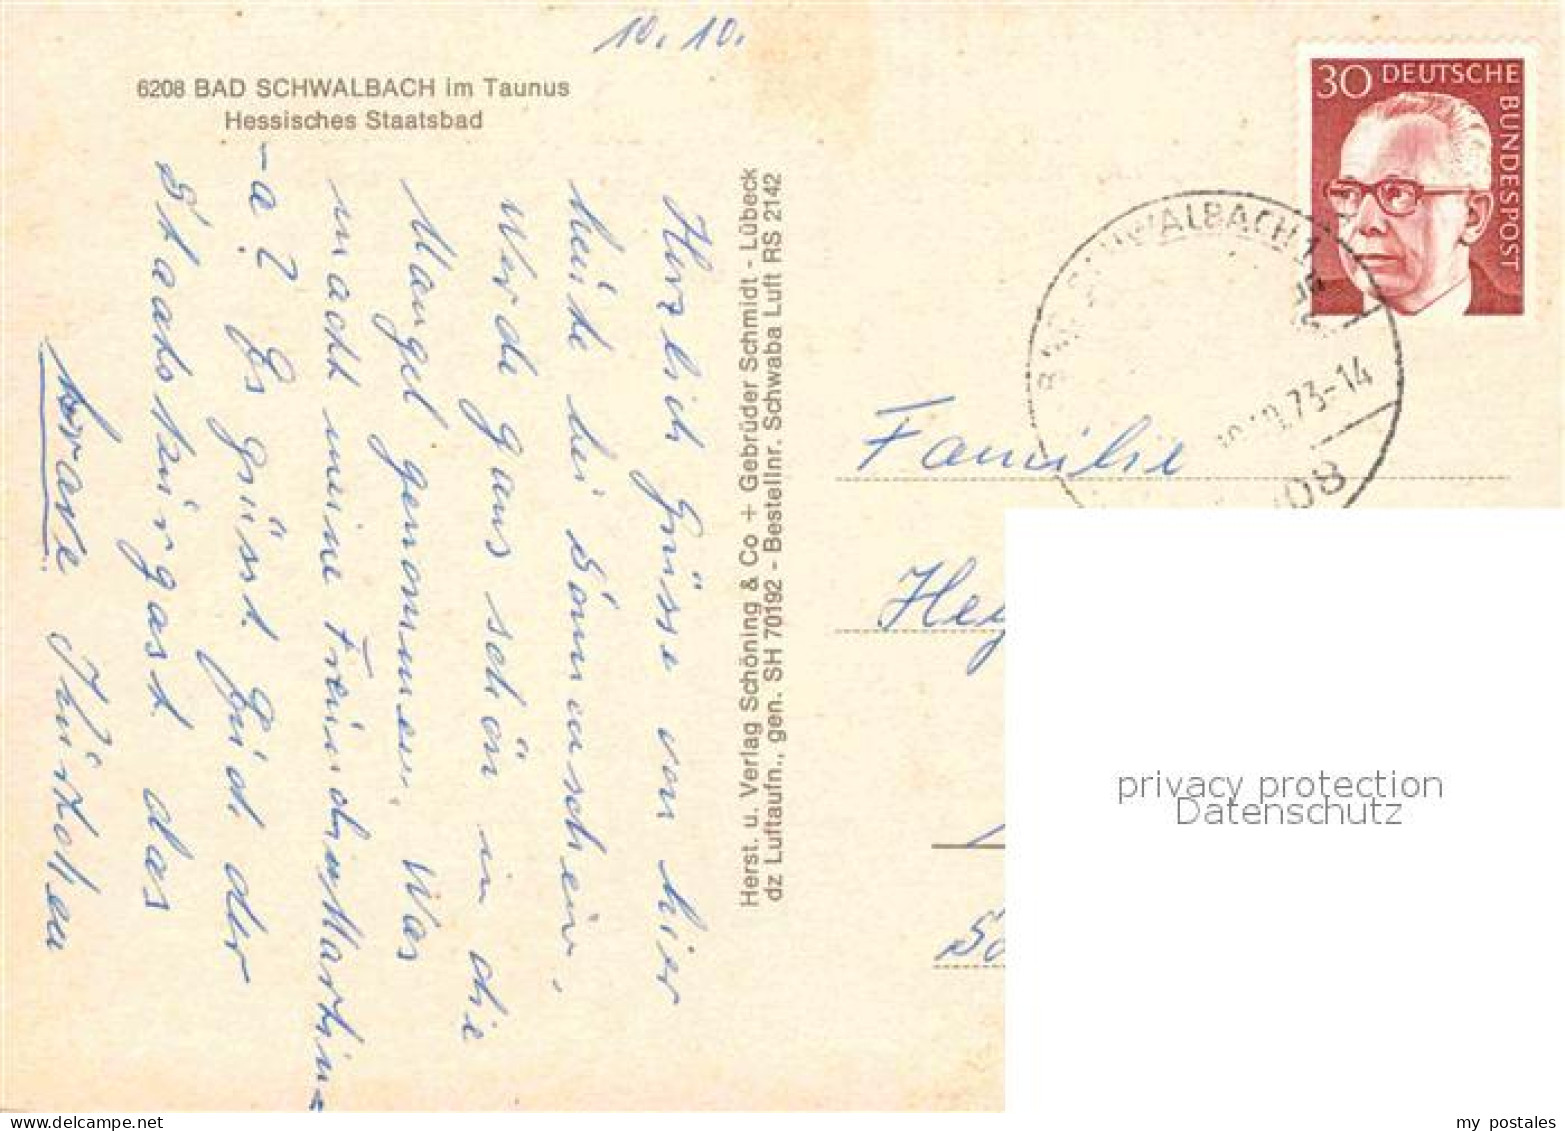 10.10.
6208 BAD SCHWALBACH im Taunus
Hessisches Staatsbad
Herzlich Grüsse von hier
heute bei Sonnenschein,
Werde ganz schön in die
Mangel genommen. Was
macht meine Freundin Martina
-a? Es grüsst Euch der
Staatskurgast das
brave
Herst. u. Verlag Schöning & Co + Gebrüder Schmidt - Lübeck
dz Luftaufn., gen. SH 70192 - Bestellnr. Schwaba Luft RS 2142
30 DEUTSCHE BUNDESPOST
SCHWALBACH 1
10.73-14
Familie
privacy protection
Datenschutz
my postales